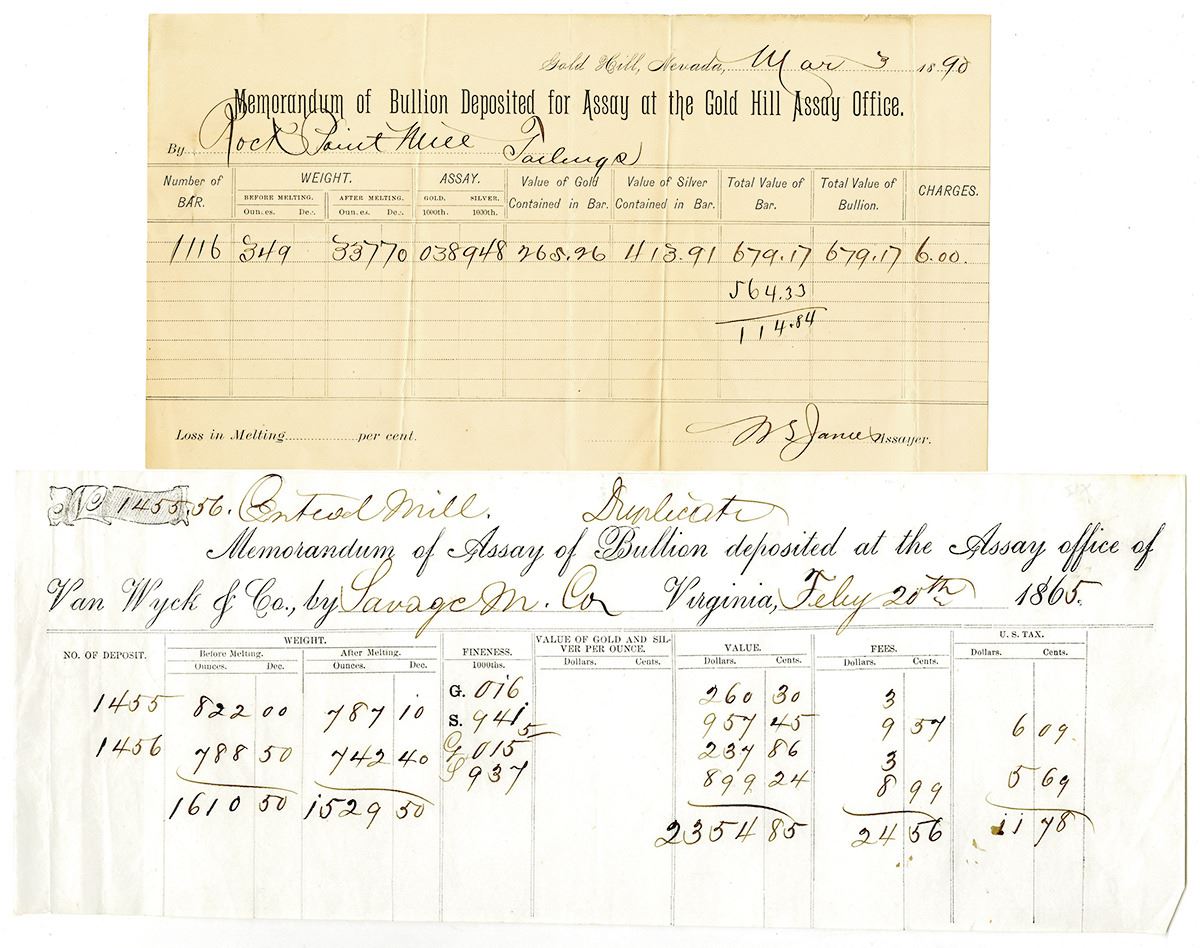 Gold Hill, Nevada, Mar 3 1890
Memorandum of Bullion Deposited for Assay at the Gold Hill Assay Office.
By Rock Point Mill Tailings
Number of BAR. WEIGHT. ASSAY. Value of Gold Contained in Bar. Value of Silver Contained in Bar. Total Value of Bar. Total Value of Bullion. CHARGES.
BEFORE MELTING. AFTER MELTING. GOLD. SILVER.
Ounces. Dec. Ounces. Dec. 1000th. 1000th.
1116 349 337 70 038 948 265.26 413.91 679.17 679.17 6.00
564.33
114.84
Loss in Melting per cent. Assayer.
No 1455.56. Central Mill. Duplicate
Memorandum of Assay of Bullion deposited at the Assay office of
Van Wyck & Co., by Savage M. Co Virginia, Feby 20th 1865.
NO. OF DEPOSIT. WEIGHT. FINENESS. VALUE OF GOLD AND SILVER PER OUNCE. VALUE. FEES. U. S. TAX.
Before Melting. After Melting.
Ounces. Dec. Ounces. Dec. 1000ths. Dollars. Cents. Dollars. Cents. Dollars. Cents. Dollars. Cents.
G. 016 260 30 3
1455 822 00 787 10 S. 941 5 957 45 9 57 6 09
G 015 237 86 3
1456 788 50 742 40 S 937 899 24 8 99 5 69
1610 50 1529 50 2354 85 24 56 11 78